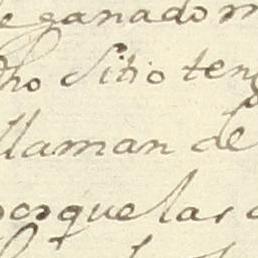 e ganado m
ho Sitio ten
llaman de
porque las